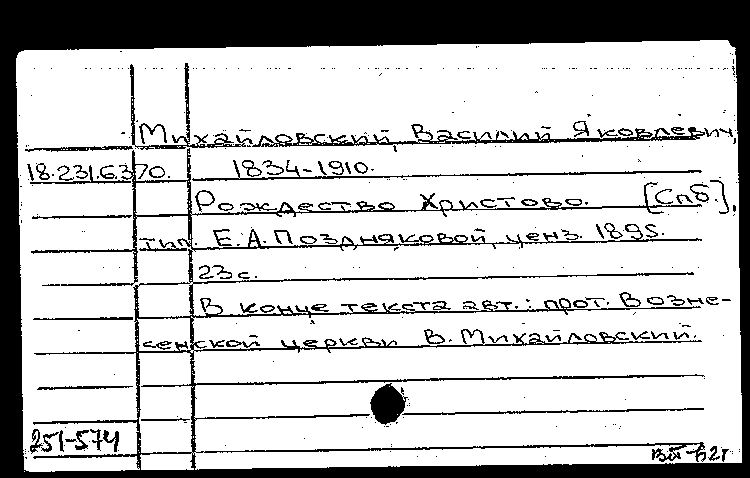 Михайловский, Василий Яковлевич,
18.231.6.370. 1834-1910.
Рождество Христово. [Спб.],
тип. Е.А. Поздняковой, ценз. 1895.
23 с.
В конце текста авт.: прот. Возне-
сенской церкви В. Михайловский.
251-574